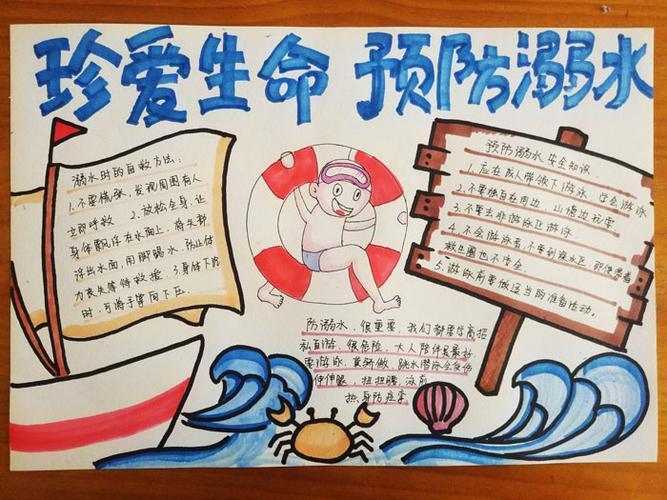 珍爱生命 预防溺水
溺水时的自救方法：
1.不要慌张，发现周围有人
立即呼救 2.放松全身，让
身体飘浮在水面上，将头部
浮出水面，用脚踢水，防止体
力丧失等待救援 3.身体下沉
时，可将手掌向下压。
预防溺水 安全知识
1.应在成人带领下游泳 学会游泳
2.不要独自在河边 山塘边玩耍
3.不要去非游泳区游泳
4.不会游泳者，不要到深水区，即使带着
救生圈也不安全
5.游泳前要做适当的准备活动。
防溺水，很重要，我们都要学高招
私自游，很危险，大人陪伴是最好
要游泳，莫骄傲，跳水潜泳会
伸伸腿，扭扭腰，泳前
热身防痉挛